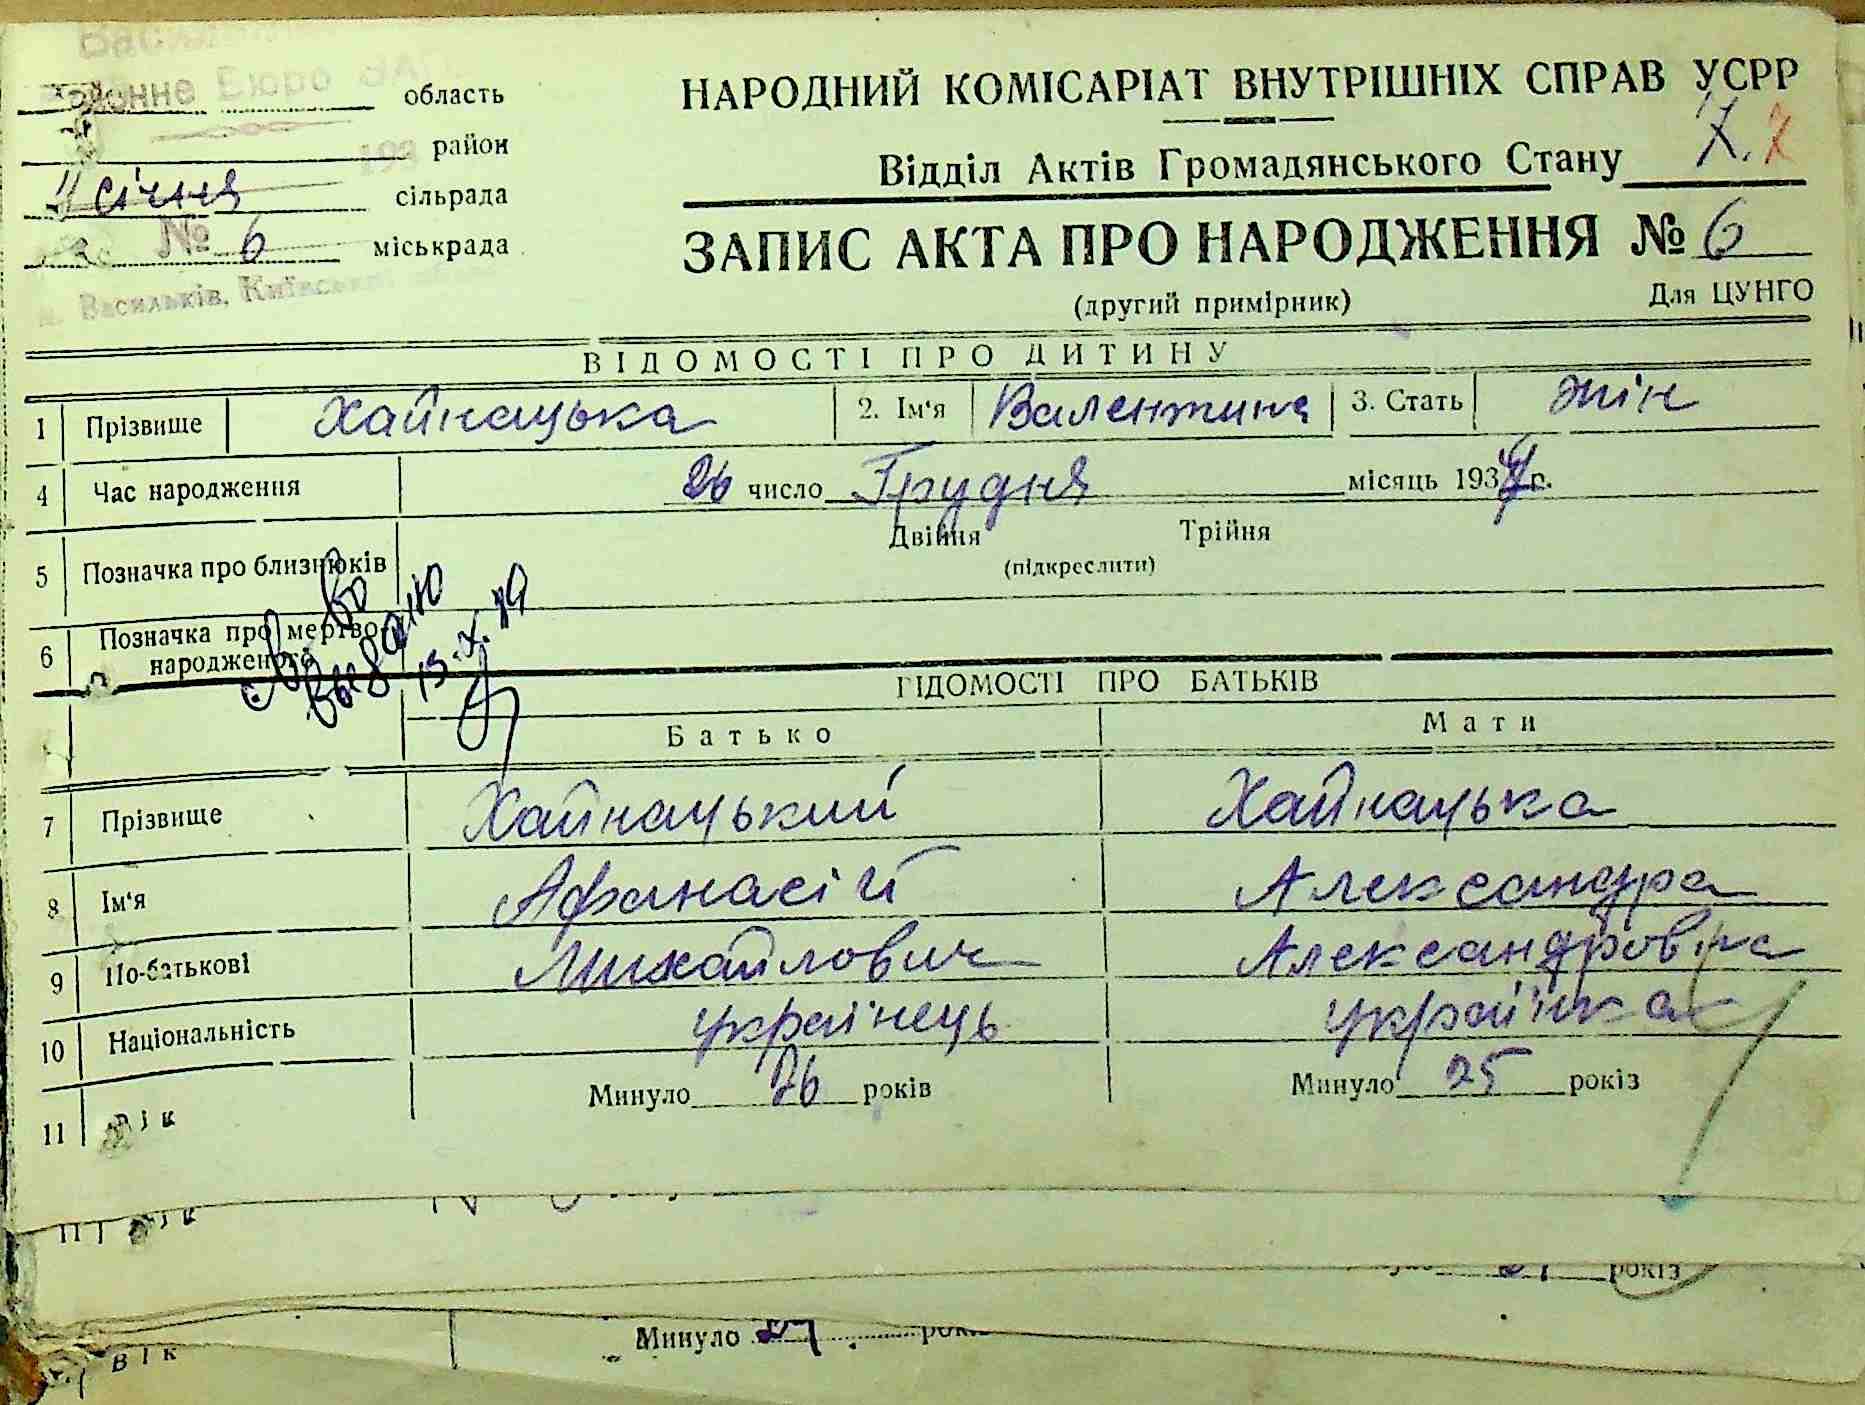 область
район
сільрада
міськрада
Січня
№ 6
м. Васильків, Київської
НАРОДНИЙ КОМІСАРІАТ ВНУТРІШНІХ СПРАВ УСРР
Відділ Актів Громадянського Стану
ЗАПИС АКТА ПРО НАРОДЖЕННЯ № 6
(другий примірник) Для ЦУНГО
ВІДОМОСТІ ПРО ДИТИНУ
1 Прізвище Хайнацька 2. Ім'я Валентина 3. Стать жін
4 Час народження 26 число Грудня місяць 193 р.
5 Позначка про близнюків Двійня Трійня
(підкреслити)
6 Позначка про мертво-
народженого
ВІДОМОСТІ ПРО БАТЬКІВ
Батько Мати
7 Прізвище Хайнацький Хайнацька
8 Ім'я Афанасій Александра
9 По-батькові Михайлович Александровна
10 Національність українець українка
11 Вік Минуло 26 років Минуло 25 років
11 Вік
років
Вік Минуло років